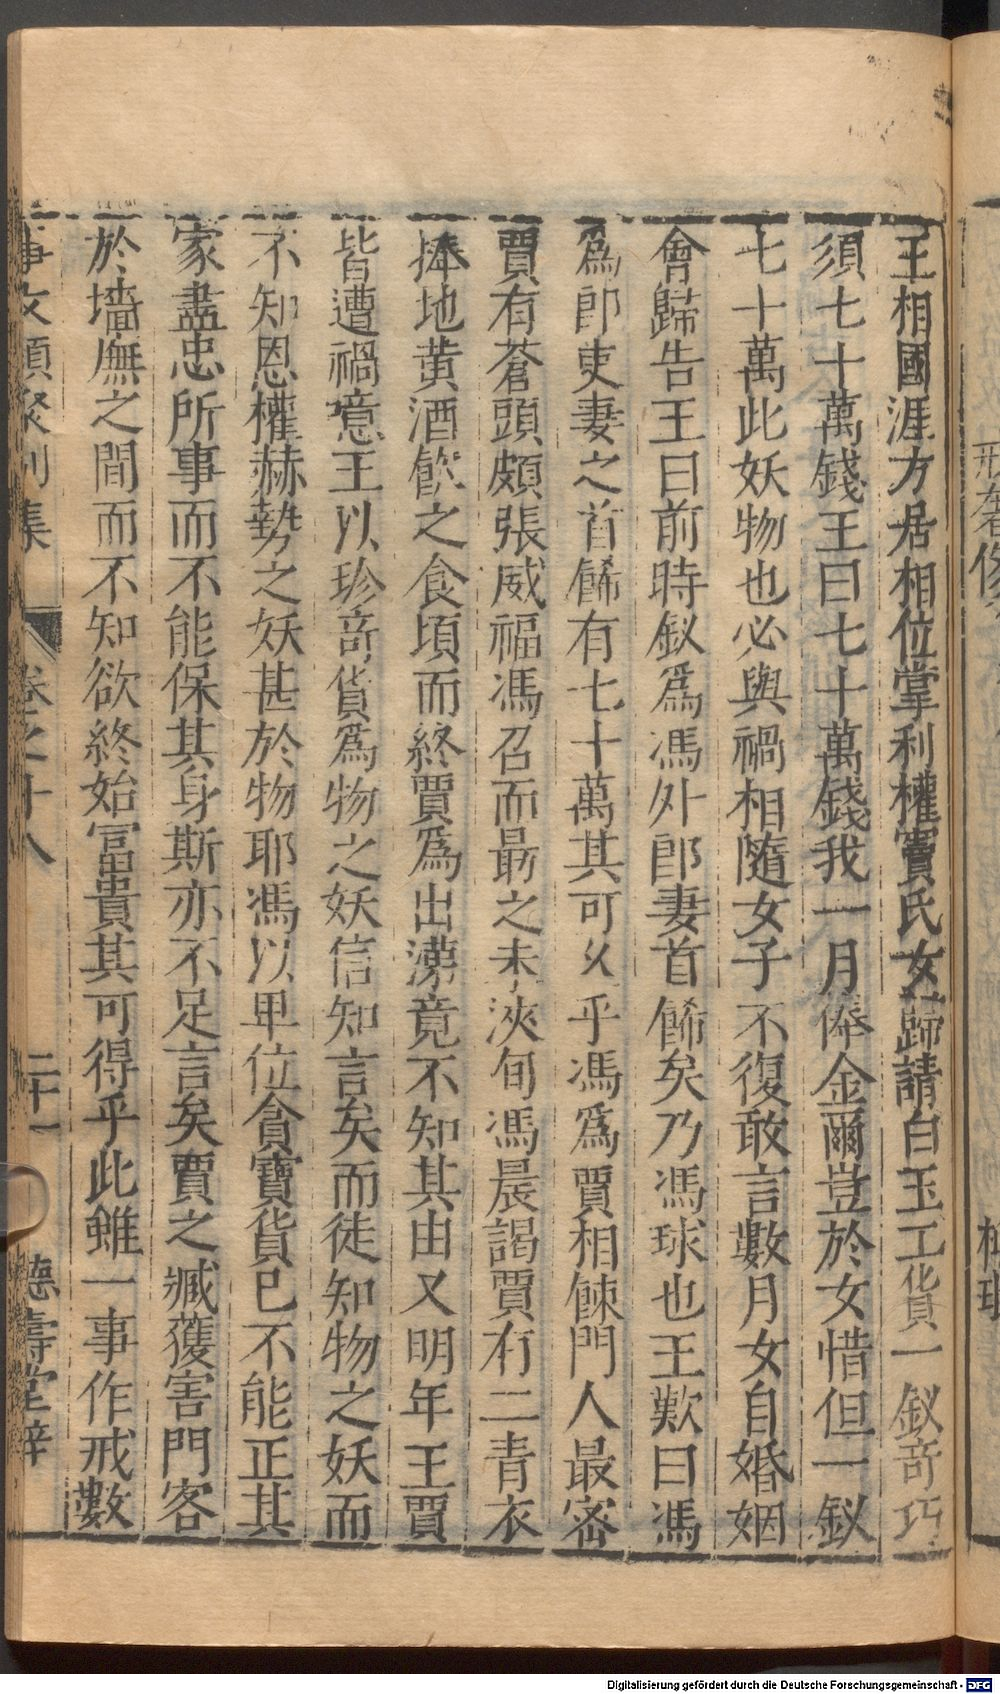 王相國涯方居相位掌利權竇氏女歸請白玉工貨一釵奇巧
須七十萬錢王曰七十萬錢我一月俸金爾豈於女惜但一釵
七十萬此妖物也必與禍相隨女子不復敢言數月女自婚姻
會歸告王曰前時釵爲馮外郎妻首餙矣乃馮球也王歎曰馮
爲郎吏妻之首餙有七十萬其可久乎馮爲賈相餗門人最密
賈有蒼頭頗張威福馮召而最之未浹旬馮晨謁賈有二青衣
捧地黄酒飲之食頃而終賈爲出涕竟不知其由又明年王賈
皆遭禍噫王以珍奇貨爲物之妖信知言矣而徒知物之妖而
不知恩權赫勢之妖甚於物耶馮以卑位貪寶貨已不能正其
家盡忠所事而不能保其身斯亦不足言矣賈之臧獲害門客
於墻廡之間而不知欲終始富貴其可得乎此雖一事作戒數
事文類聚別集 卷之十八 二十一 德壽堂梓
Digitalisierung gefördert durch die Deutsche Forschungsgemeinschaft - DFG